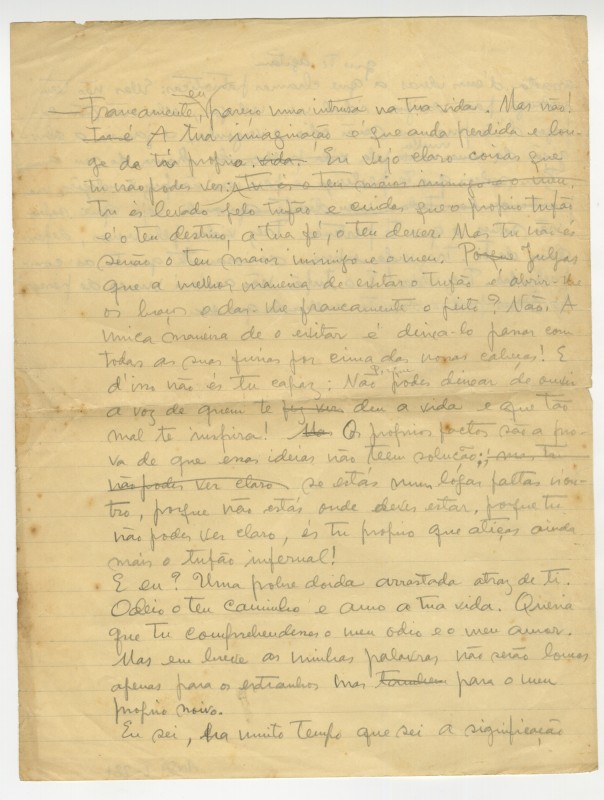 eu
— Francamente, pareço uma intrusa na tua vida. Mas não!
Tu é A tua imaginação é que anda perdida e lon-
ge da tua propria vida. Eu vejo claro coisas que
tu não podes ver: Tu és o teu maior inimigo e o meu.
Tu és levado pelo tufão e cuidas que o proprio tufão
é o teu destino, a tua fé, o teu dever. Mas tu não és
senão o teu maior inimigo e o meu. Julgas
que a melhor maneira de evitar o tufão é abrir-lhe
os braços e dar-lhe francamente o peito? Não! A
unica maneira de o evitar é deixa-lo passar com
todas as suas furias por cima das nossas cabeças! E
d'isso não és tu capaz: Não podes deixar de ouvir
a voz de quem te fez viver deu a vida e que tão
mal te inspira! Mas Os proprios factos são a pro-
va de que essas ideias não teem solução; mas tu
não podes ver claro se estás num logar faltas nou-
tro, porque não estás onde deves estar, porque tu
não podes ver claro, és tu proprio que atiças ainda
mais o tufão infernal!
E eu? Uma pobre doida arrastada atraz de ti.
Odeio o teu caminho e amo a tua vida. Queria
que tu comprehendesses o meu odio e o meu amor.
Mas em breve as minhas palavras não serão loucas
apenas para os extranhos mas tambem para o meu
proprio noivo.
Eu sei, ha muito tempo que sei a significação